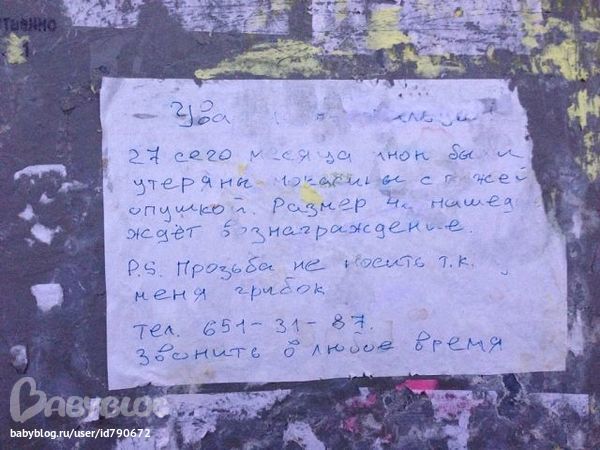 27 сего месяца мною были
утеряны мокасины с рыжей
опушкой. Размер нашед
ждёт вознаграждение.
P.S. Прозьба не носить т.к. у
меня грибок
тел. 651-31-87.
Звонить в любое время
BABYBLOG
babyblog.ru/user/id790672